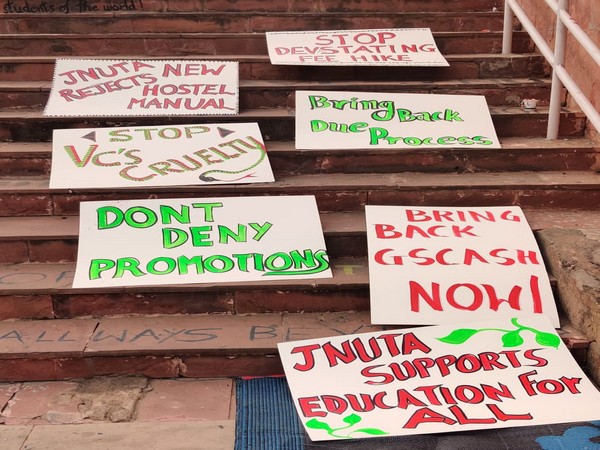 students of the world!
STOP
DEVSTATING
FEE HIKE
JNUTA NEW
REJECTS HOSTEL
MANUAL
Bring Back
Due Process
STOP
VC'S CRUELTY
DONT
DENY
PROMOTIONS
BRING
BACK
GSCASH
NOW!
ALLWAYS BE
JNUTA
SUPPORTS
EDUCATION FOR
ALL